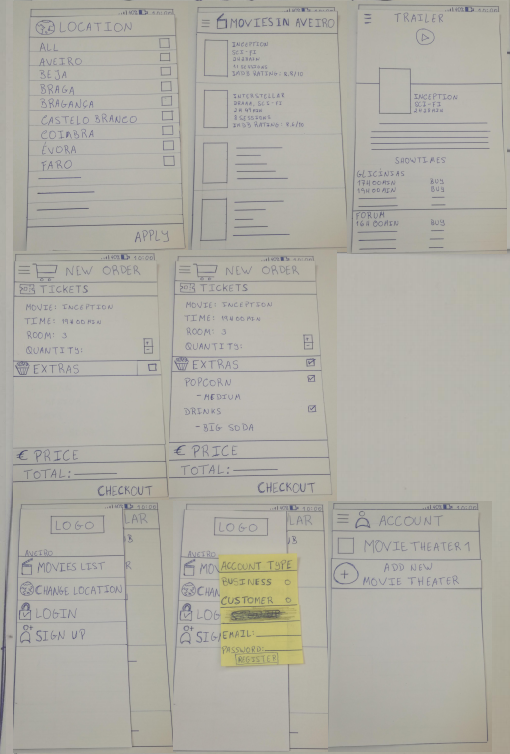 LOCATION
ALL
AVEIRO
BEJA
BRAGA
BRAGANÇA
CASTELO BRANCO
COIMBRA
ÉVORA
FARO
APPLY
MOVIES IN AVEIRO
INCEPTION
SCI-FI
2H28MIN
SESSIONS
IMDB RATING: 8.8/10
INTERSTELLAR
DRAMA, SCI-FI
2H49MIN
SESSIONS
IMDB RATING: 8.6/10
TRAILER
INCEPTION
SCI-FI
2H28MIN
SHOWTIMES
GLICINIAS
17H00MIN BUY
19H00MIN BUY
FORUM
16H00MIN BUY
10:00
NEW ORDER
TICKETS
MOVIE: INCEPTION
TIME: 19H00MIN
ROOM: 3
QUANTITY: + -
EXTRAS
€ PRICE
TOTAL:
CHECKOUT
10:00
NEW ORDER
TICKETS
MOVIE: INCEPTION
TIME: 19H00MIN
ROOM: 3
QUANTITY: + -
EXTRAS
POPCORN
- MEDIUM
DRINKS
- BIG SODA
€ PRICE
TOTAL:
CHECKOUT
10:00
LOGO
LAR
AVEIRO
MOVIES LIST
CHANGE LOCATION
LOGIN
SIGN UP
10:00
LOGO
LAR
AVEIRO
MOV
CHAN
LOG
SIG
ACCOUNT TYPE
BUSINESS
CUSTOMER
EMAIL:
PASSWORD:
REGISTER
10:00
ACCOUNT
MOVIE THEATER 1
+ ADD NEW
MOVIE THEATER